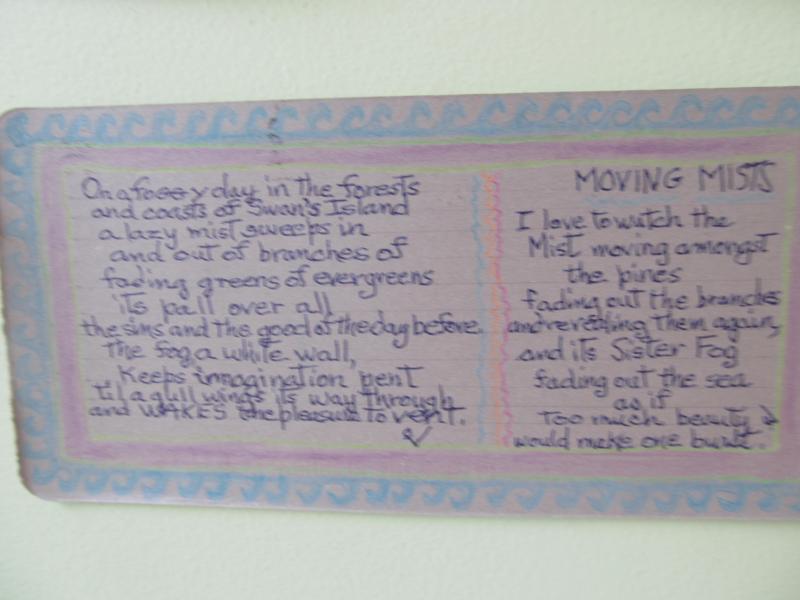 On a foggy day in the forests
and coasts of Swan's Island
a lazy mist sweeps in
and out of branches of
fading greens of evergreens
its pall over all
the sins and the good of the day before.
The fog a white wall,
Keeps imagination pent
'til a gull wings its way through
and WAKES the pleasure to vent.
MOVING MISTS
I love to watch the
Mist moving amongst
the pines
fading out the branches
and revealing them again,
and its Sister Fog
fading out the sea
as if
too much beauty
would make one burst.